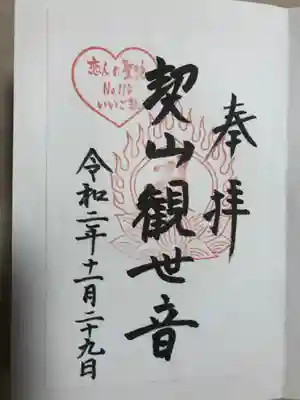 奉拝
契山観世音
令和二年十一月二十九日
恋人の聖地
No.119